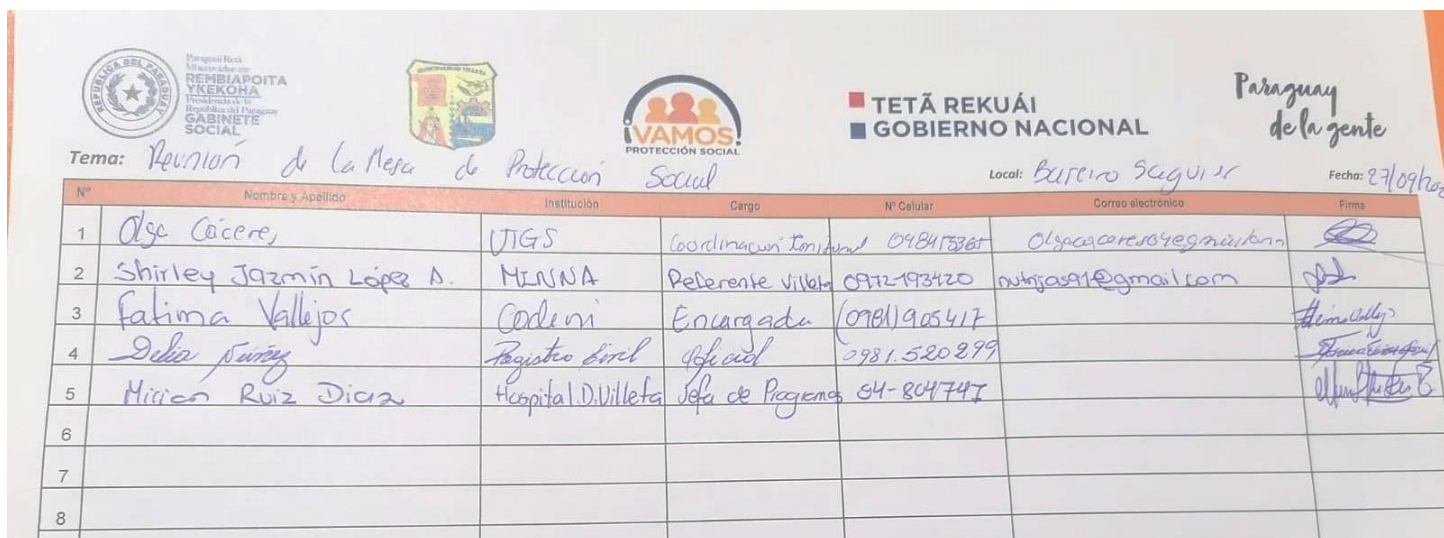 REPUBLICA DEL PARAGUAY
Paraguái Retã
REMBIAPOITA
YKEKOHA
Presidencia de la
República del Paraguay
GABINETE
SOCIAL
MUNICIPALIDAD VILLETA
¡VAMOS!
PROTECCIÓN SOCIAL
TETÃ REKUÁI
GOBIERNO NACIONAL
Paraguay
de la gente
Tema: Reunión de la Mesa de Protección Social Local: Bareiro Saguier Fecha: 27/09/202
Nº Nombre y Apellido Institución Cargo Nº Celular Correo electrónico Firma
1 Olga Cáceres UTGS Coordinación
2 Shirley Jazmín López A. MINNA Referente Villeta 0972-193420 nutrijas91@gmail.com
3 Fatima Vallejos Codeni Encargada (0981)905417
4 Delia Núñez Registro Civil Oficial 0981.520299
5 Mirian Ruiz Diaz Hospital.D.Villeta Jefa de Programas 84-804747
6
7
8